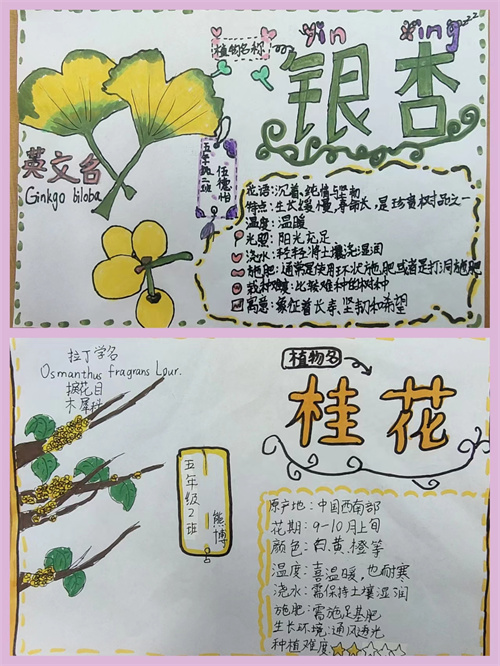 植物名称
Yin Xing
银杏
英文名
Ginkgo biloba
五年级二班
伍德怡
花语:沉着、纯情与坚韧
特点:生长缓慢,寿命长,是珍贵树品之一
温度:温暖
光照:阳光充足
浇水:轻轻将土壤浇湿润
施肥:通常是使用环状施肥或者是打洞施肥
栽种难度:比较难种的树种
寓意:象征着长寿、坚韧和希望
拉丁学名
Osmanthus fragrans Lour.
捩花目
木犀科
植物名
桂花
五年级2班
熊博
原产地:中国西南部
花期:9-10月上旬
颜色:白、黄、橙等
温度:喜温暖,也耐寒
浇水:需保持土壤湿润
施肥:需施足基肥
生长环境:通风透光
种植难度: